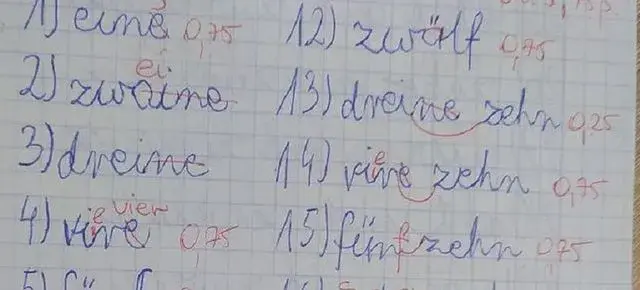 1) eine 0,75
ei
2) zwoine
3) dreine
vier
4) vire 0,75
5)
12) zwölf 0,75
13) dreine zehn 0,25
14) vine zehn 0,75
15) fünf zehn 0,75